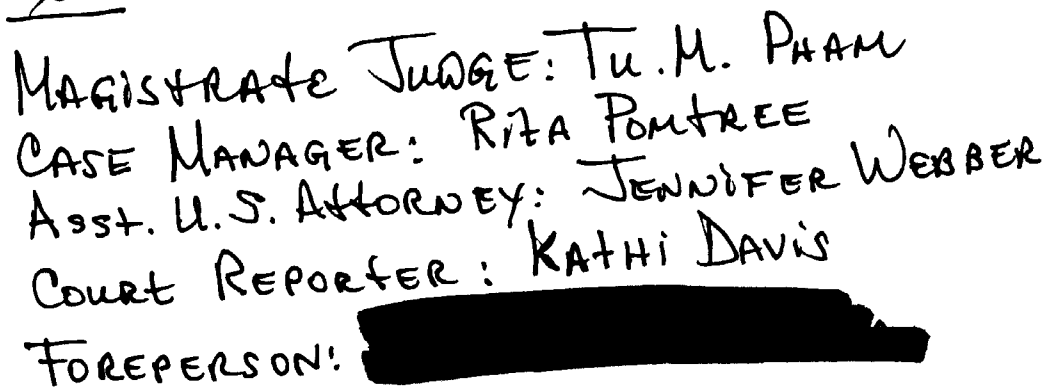 MAGiStRAtE JUDGE: Tu. M. PHAM
CASE MANAGER: RitA PomtREE
Asst. U.S. AttORNEY: JENNiFER WEBBER
COURt REPORtER: KAtHi DAViS
FOREPERSON: